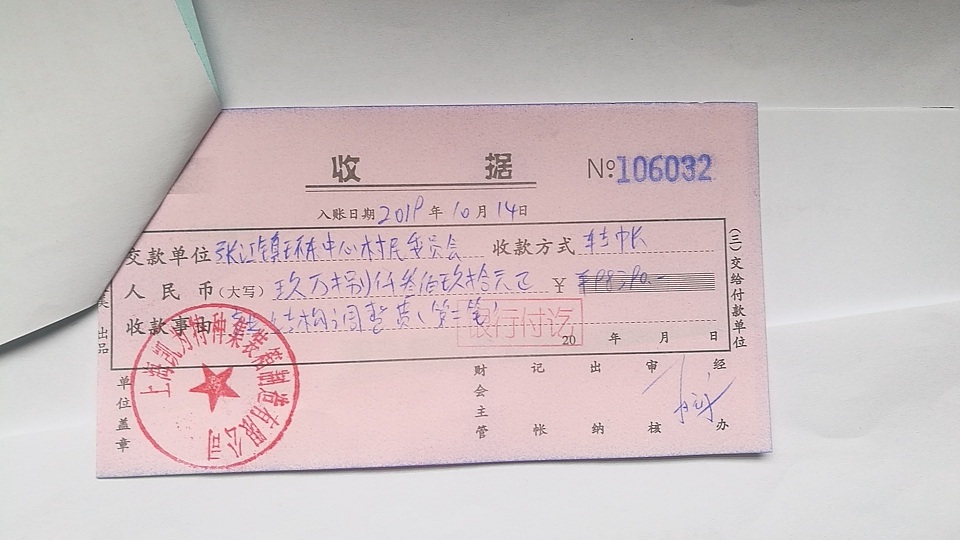 收 据 No:106032
入账日期 2019 年 10 月 14 日
交款单位 张江镇环东中心村民委员会 收款方式 转帐
人民币(大写) 玖万捌仟叁佰玖拾元正 ¥ ¥98390.-
收款事由 结构调整费(第二笔)
银行付讫
20 年 月 日
(三)交给付款单位
出品
单位盖章
上海凯为特种集装箱制造有限公司
财会主管 记帐 出纳 审核 经办